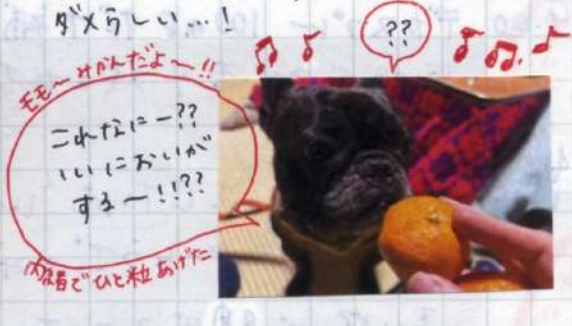 ダメらしい…!
??
モモ〜みかんだよ〜!!
これなにー??
いいにおいが
する〜!!??
内緒でひと粒あげた